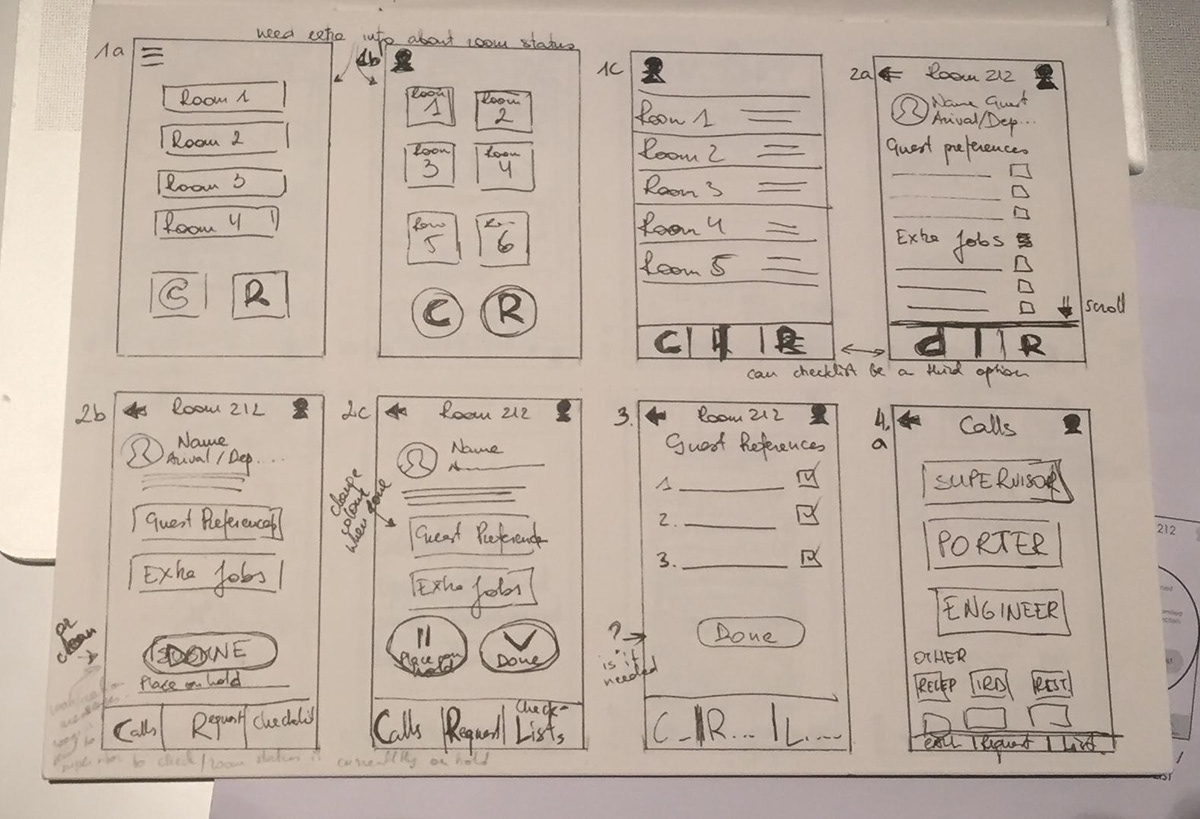 need extra info about room status
1a
Room 1
Room 2
Room 3
Room 4
C R
1b
Room 1
Room 2
Room 3
Room 4
Room 5
6
C R
1C
Room 1
Room 2
Room 3
Room 4
Room 5
C R
2a
Room 212
Name Guest
Arival/Dep...
Guest preferences
Extra Jobs
scroll
R
can checklist be a third option
2b
Room 212
Name
Arival/Dep....
Guest Preferences
Extra Jobs
DONE
Place on hold
Calls Request Checklist
clean
2c
Room 212
Name
A
change
colour
when done
Guest Preference
Extra Jobs
Place on
hold
Done
Calls Request Check-
Lists
3.
Room 212
Guest References
1.
2.
3.
Done
?
is it
needed
C R... L....
4.
a
Calls
SUPERVISOR
PORTER
ENGINEER
OTHER
RECEP IRD REST
CALL Request List
to check/room status is currently on hold
212